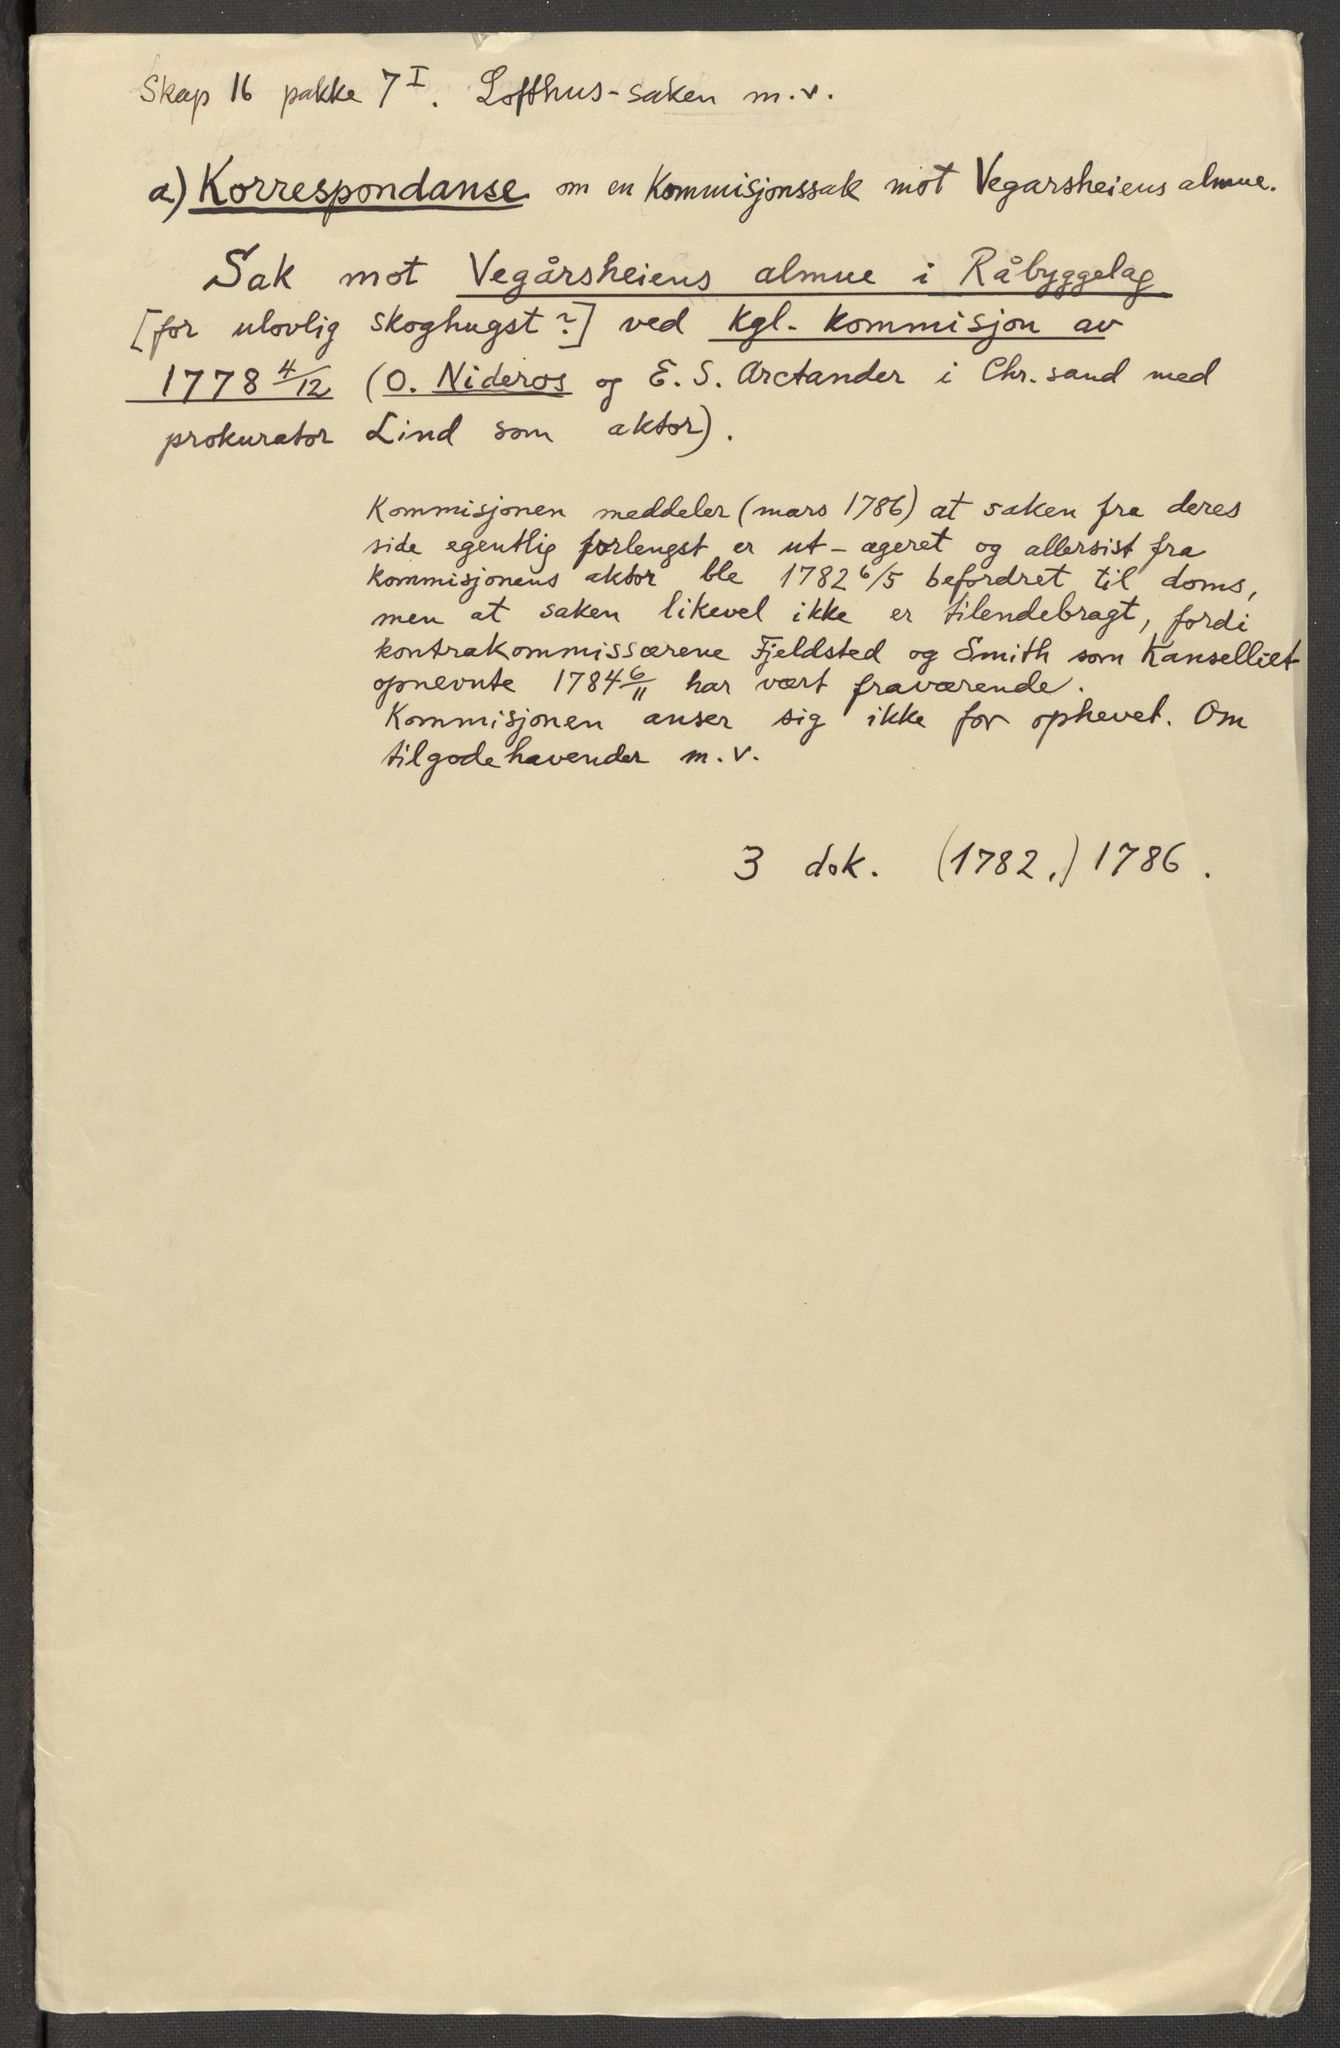 Skap 16 pakke 7 I. Lofthus-saken m.v.
a) Korrespondanse om en kommisjonssak mot Vegarsheiens almue.
Sak mot Vegårsheiens almue i Råbyggelag
[for ulovlig skoghugst?] ved kgl. kommisjon av
1778 4/12 (O. Nideros og E. S. Arctander i Chr.sand med
prokurator Lind som aktor).
Kommisjonen meddeler (mars 1786) at saken fra deres
side egentlig forlengst er ut-ageret og allersist fra
kommisjonens aktor ble 1782 6/5 befordret til doms,
men at saken likevel ikke er tilendebragt, fordi
kontrakommissærene Fjeldsted og Smith som Kanselliet
opnevnte 1784 6/11 har vært fraværende.
Kommisjonen anser sig ikke for ophevet. Om
tilgodehavender m.v.
3 dok. (1782,) 1786.